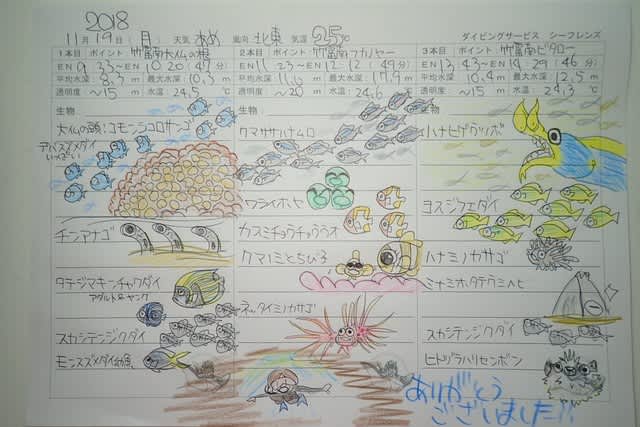 2018
11月19日(月) 天気 あめ 風向 北東 気温 25℃ ダイビングサービス シーフレンズ
1本目 ポイント 竹富南大仏の根
EN 9:33~EN 10:20(47分)
平均水深: 8.3m 最大水深: 10.3m
透明度 ~15m 水温: 24.5℃
生物
大仏の頭:コモンシコロサンゴ
アバスズメダイ
いっぱい
チンアナゴ
タテジマキンチャクダイ
アダルト&ヤング
スカシテンジクダイ
モンスズメダイ幼魚
2本目 ポイント 竹富南アカノヤー
EN 11:23~EN 12:12(49分)
平均水深: 11.6m 最大水深 17.9m
透明度 ~20m 水温: 24.6℃
生物
クマササハナムロ
ワライボヤ
カスミチョウチョウウオ
クマノミとちび3
ネッタイミノカサゴ
3本目 ポイント 竹富南ビタロー
EN 13:43~EN 14:29(46分)
平均水深: 10.4m 最大水深: 12.5m
透明度 ~15m 水温: 24.3℃
生物
ハナヒゲウツボ
ヨスジフエダイ
ハナミノカサゴ
ミナミホタテウミヘビ
スカシテンジクダイ
ヒトヅラハリセンボン
ありがとう
ございました!!